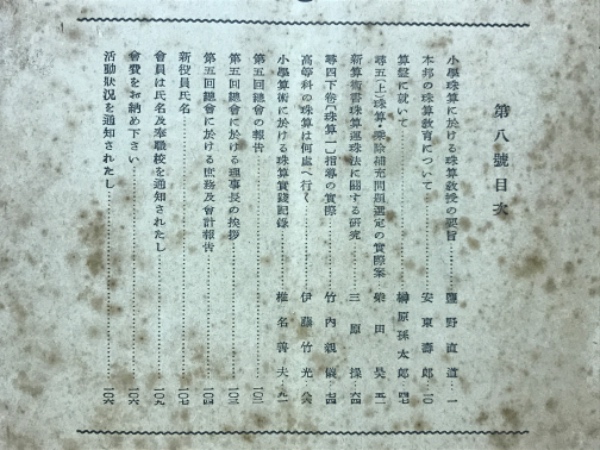 第八號目次
小學珠算に於ける珠算教授の要旨 鹽野直道 一
本邦の珠算教育について 安東壽郎 一〇
算盤に就いて 榊原孫太郎 四七
尋五(上)珠算・乘除補充問題選定の實際案 柴田昊 五一
新算術書珠算運珠法に關する研究 三原操 六四
尋四下卷〔珠算一〕指導の實際 竹内親儀 七四
高等科の珠算は何處へ行く 伊藤竹光 八六
小學算術に於ける珠算實踐記錄 椎名善夫 九一
第五回總會の報告 一〇二
第五回總會に於ける理事長の挨拶 一〇三
第五回總會に於ける庶務及會計報告 一〇四
新役員氏名 一〇七
會員は氏名及奉職校を通知されたし 一〇九
會費をお納め下さい 一〇六
活動狀況を通知されたし 一〇六